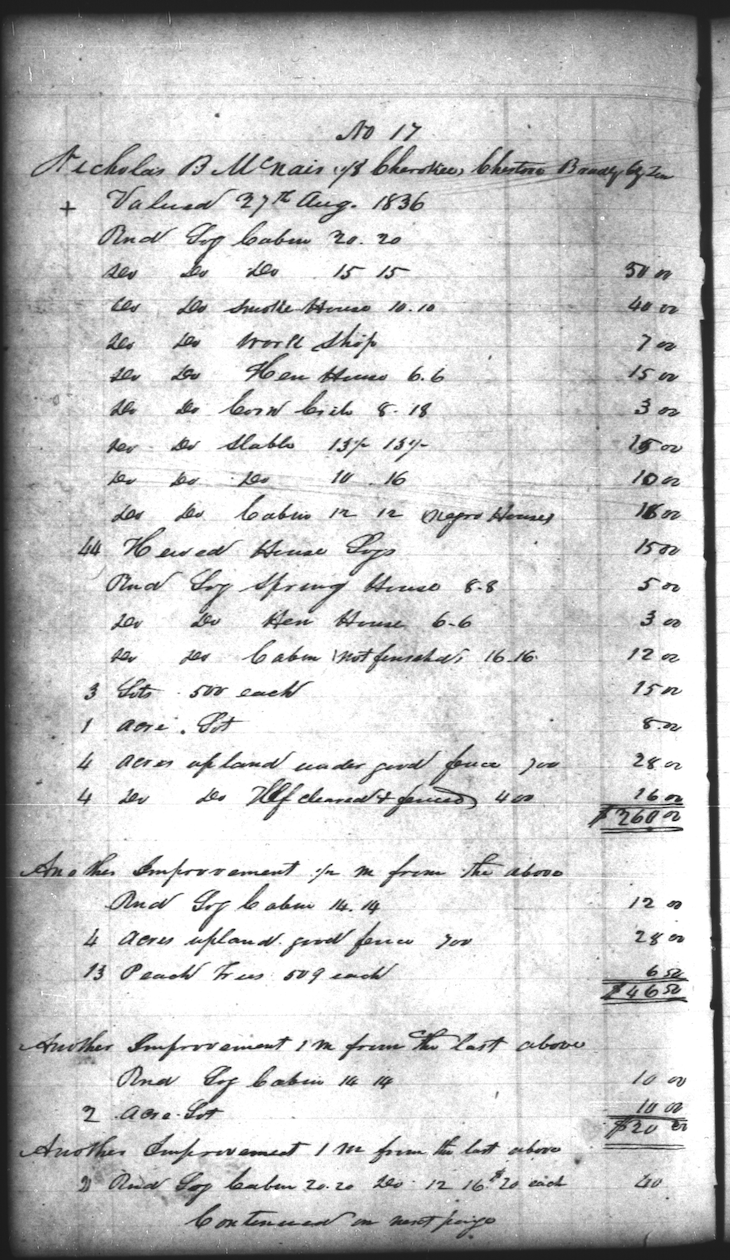 No 17
Nicholas B McNair 1/8 Cherokee, Chestooe Bradly Cty Ten
+ Valued 27th Aug. 1836
Rnd Log Cabin 20.20
Do Do Do 15 15 50 00
Do Do Smoke House 10.10 40 00
Do Do Work Shop 7 00
Do Do Hen House 6.6 15 00
Do Do Corn Crib 8-18 3 00
Do Do Stable 15 00
Do Do Do 10 . 16 10 00
Do Do Cabin 12 12 (Negro House) 00
44 Hewed House Logs 15 00
Rnd Log Spring House 8-8 5 00
Do Do Hen House 6-6 3 00
Do Do Cabin (not finished) 16.16 12 00
3 Lots 500 each 15 00
1 Acre Lot 8.00
4 Acres upland under good fence 700 28 00
4 Do Do Half cleared & fenced 400 16 00
$260 00
Another Improvement 1/2 m from the above
Rnd Log Cabin 14.14 12 00
4 Acres upland good fence 700 28 00
13 Peach Trees 50¢ each 6 50
$46 50
Another Improvement 1 m from the last above
Rnd Log Cabin 14 14 10 00
2 Acre Lot 10 00
$20 00
Another Improvement 1 m from the last above
2 Rnd Log Cabin 20.20 Do 12 16 $20 each 40
Continued on next page